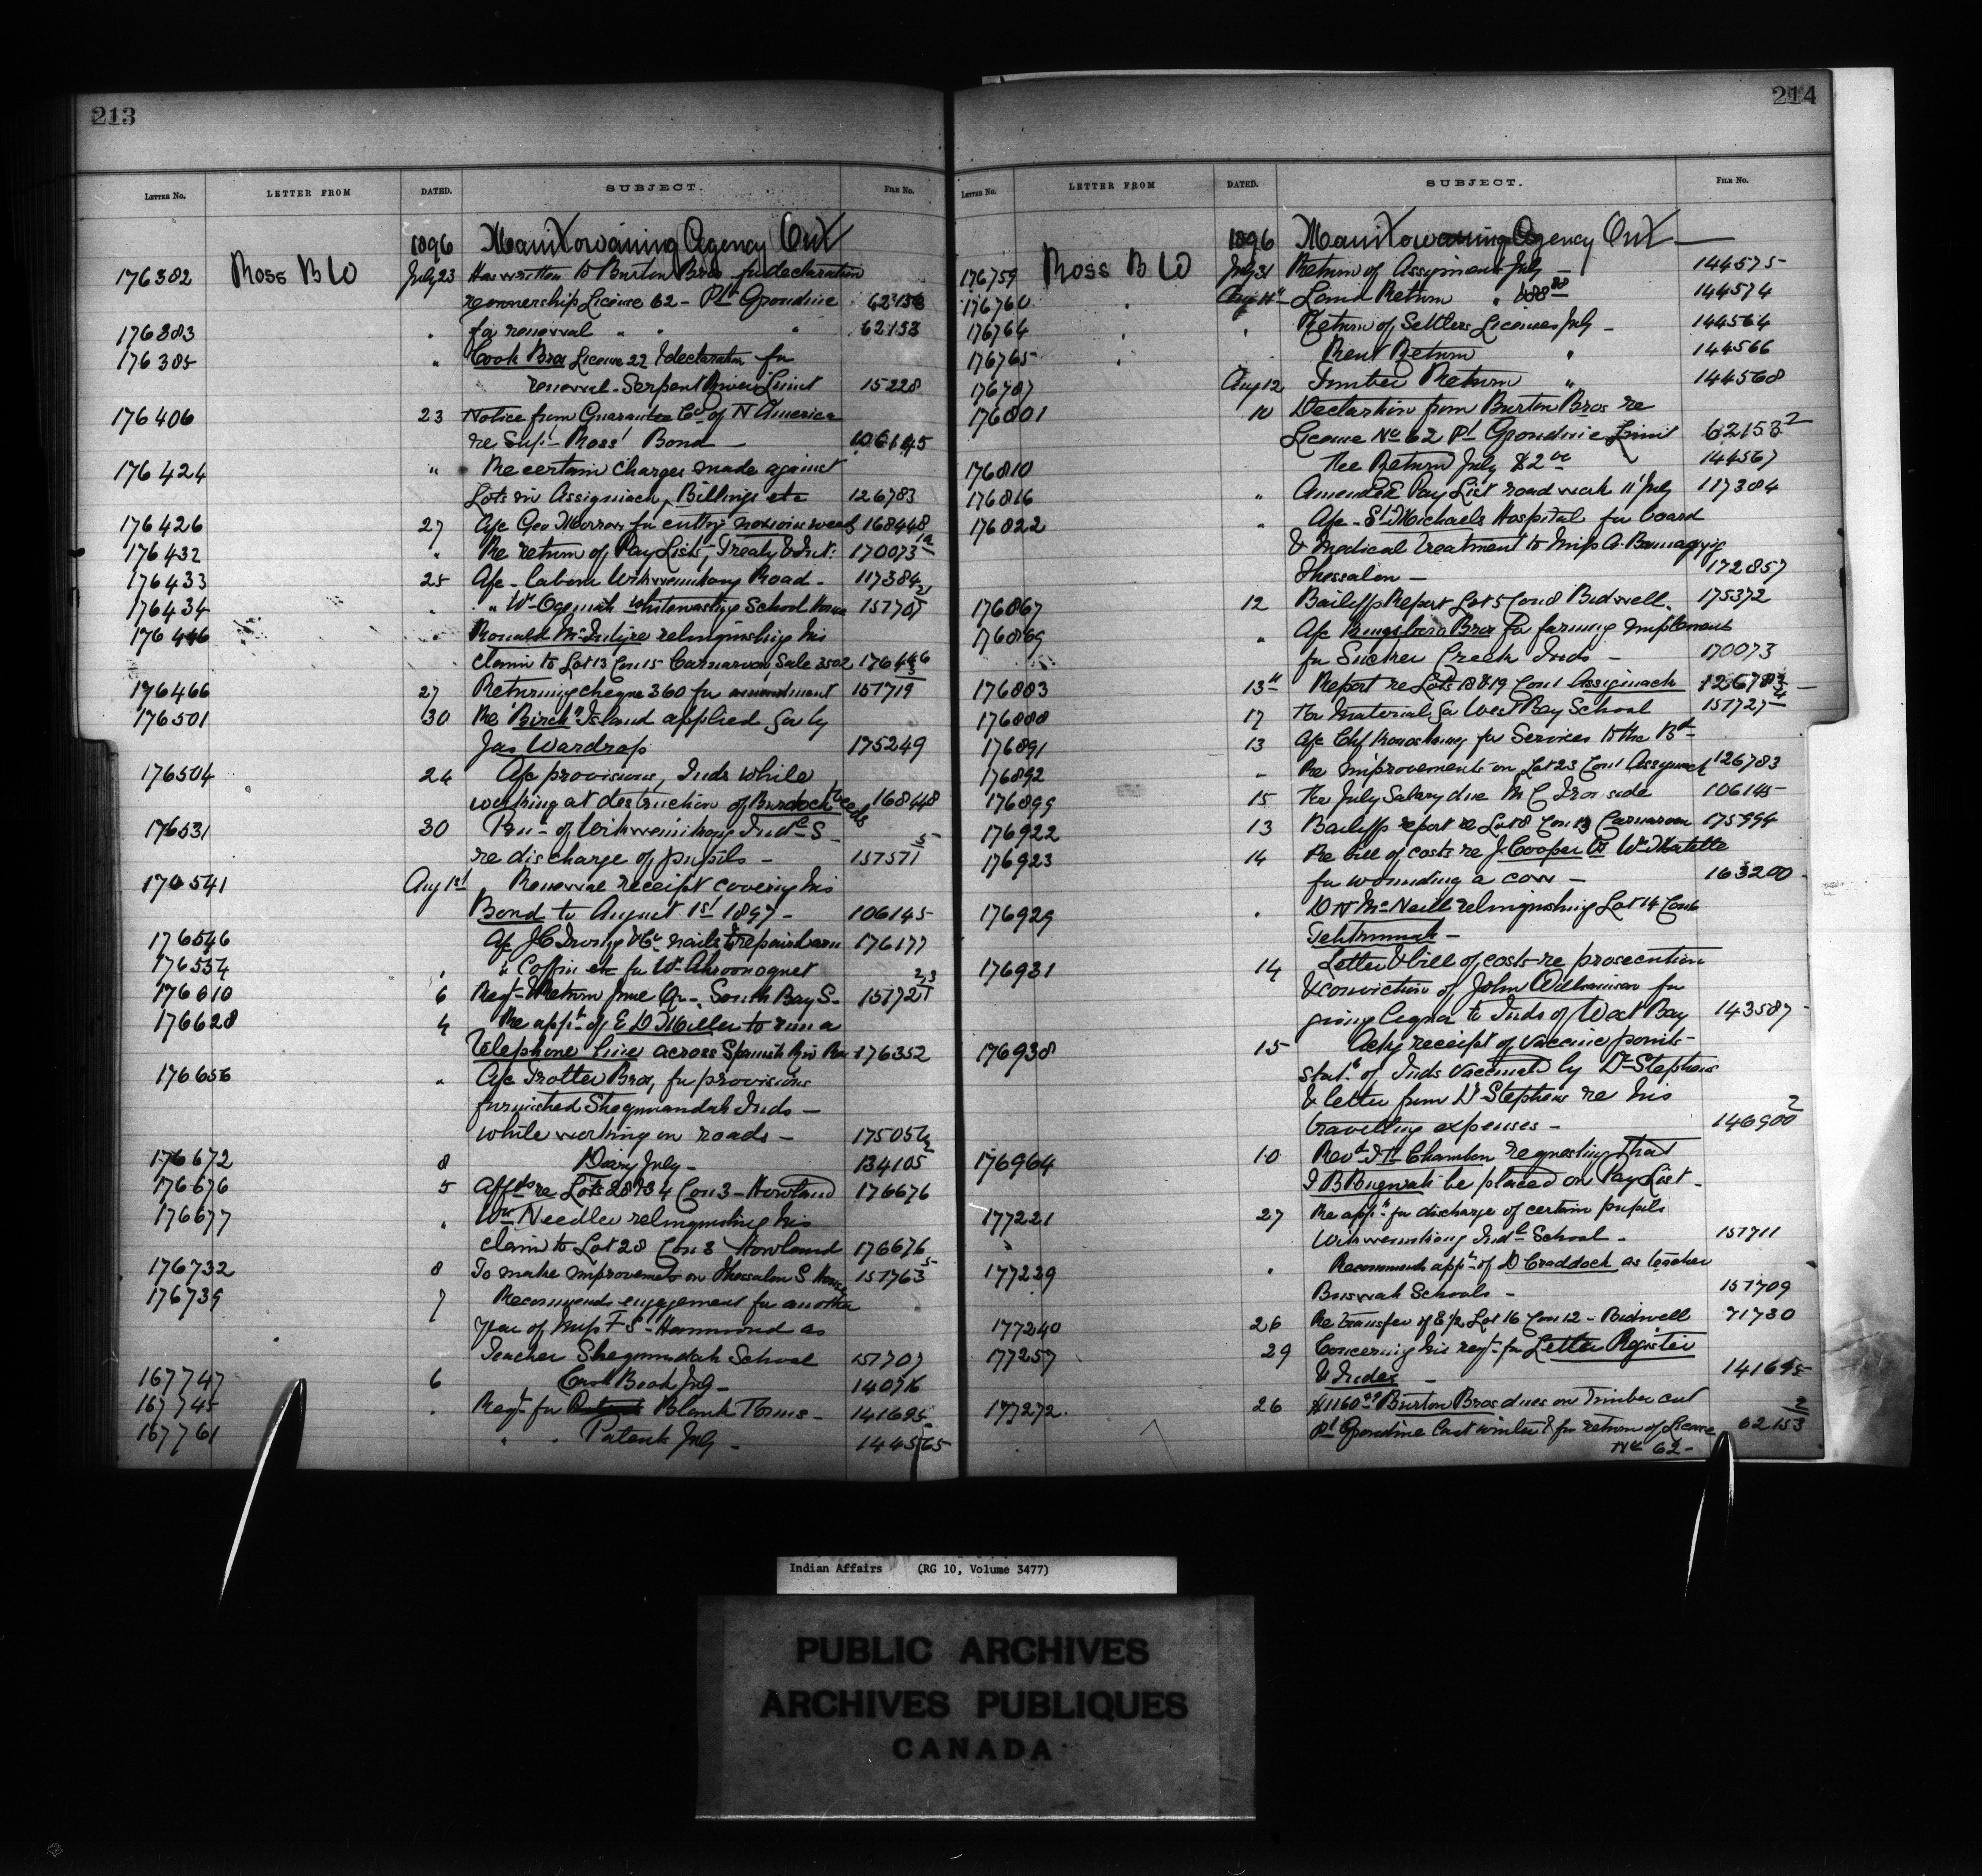 213
LETTER NO. LETTER FROM DATED. SUBJECT. FILE NO.
1896 Manitowaning Agency Ont
176382 Ross B W July 23 Has written to Burton Bros for declaration
re ownership License 62 - Pt Grondine 62153
176383 " for renewal " " " 62153
176385 " Cook Bros License 22 & declaration for
renewal - Serpent River Limit 15228
176406 23 Notice from Guarantee Co of N America
re Supt Ross' Bond - 106145
176424 " Re certain charges made against
Lots in Assiginack, Billings etc 126783
176426 27 A/c Geo Morrow for cutting noxious weeds 168448
176432 " Re return of Pay Lists, Treaty & Int: 170073
176433 25 A/c - labour Wikwemikong Road - 117384
176434 " " Wm Ogemah whitewashing School House 151705
176446 " Ronald McIntyre relinquishing his
claim to Lot 13 Con 15 Carnarvon, Sale 3502 176446
176466 27 Returning cheque 360 for amendment 151719
176501 30 Re "Birch" Island applied for by
Jas Wardrop 175249
176504 24 A/c provisions, Inds while
working at destruction of Burdock weeds 168448
176531 30 of Wikwemikong Indl S -
re discharge of pupils - 157571 5
170541 Aug 1st Renewal receipt covering his
Bond to August 1st 1897 - 106145
176546 A/c J C Irving & Co nails to repair barn 176177
176554 " " Coffin etc for Wm 
176610 6 Reqt & Return June Qr - South Bay S - 151721 23
176628 4 Re appn of E D Miller to run a
Telephone Line across Spanish Riv Res 176352
176656 " A/c Trotter Bros, for provisions
furnished Sheguiandah Inds -
while working on roads - 175056 2
176672 8 Diary July - 134105
176676 5 Affts re Lots 28 & 34 Con 3 - Howland 176676
176677 " Wm Needler relinquishing his
claim to Lot 28 Con 3 Howland 176676
176732 8 To make improvements on Thessalon S House 151763 5
176739 7 Recommends engagement for another
year of Miss F S - Hammond as
Teacher Sheguiandah School 151707
167747 6 Cash Book July - 140716
167745 " Reqt for Blank Forms - 141695
167761 " " Patents July - 144565
214
LETTER NO. LETTER FROM DATED. SUBJECT. FILE NO.
1896 Manitowaning Agency Ont
176759 Ross B W July 31 Return of Assignments July - 144575
176760 " Aug 11th Land Return " 144574
176764 " " Return of Settlers Licenses July - 144564
176765 " Rent Return " 144566
176787 Aug 12 Timber Return " 144568
176801 10 Declaration from Burton Bros re
License No 62 Pt Grondine Limit 62153 2
176810 Fee Return July $2 00 144567
176816 " Amended Pay List road work 11 July 117384
176822 " A/c - St Michaels Hospital for board
& medical treatment to Miss A. 
Thessalon - 172857
176867 12 Bailiffs Report Lot 5 Con 8 Bidwell. 175372
176869 " A/c Kingsboro Bros for farming implements
for Sucker Creek Inds - 170073
176883 13th Report re Lots 18 & 19 Con 1 Assiginack 126783
176888 17 For material for West Bay School 151727
176891 13 A/c Chf for Services to the Bd
176892 " Re improvements on Lot 23 Con 1 Assiginack 126783
176899 15 For July Salary due M C Ironside 106145
176922 13 Bailiffs report re Lot 8 Con 13 Carnarvon 175994
176923 14 Re bill of costs re J. Cooper vs Wm 
for wounding a cow - 163200
176929 " D N McNeill relinquishing Lot 14 Con 6
Tehkummah -
176931 14 Letter & bill of costs re prosecution
& conviction of John Williamson for
giving liquor to Inds of West Bay 143587
176938 15 Ackg receipt of vaccine points -
Statt of Inds vaccinated by Dr Stephens
& letter from Dr Stephens re his
travelling expenses - 146900 2
176964 10 Revd Chambon requesting that
J B be placed on Pay List -
177221 27 Re appn for discharge of certain pupils
Wikwemikong Indl School - 151711
177239 " Recommends appt of D Craddock as teacher
Schools - 151709
177240 26 Re transfer of E 1/2 Lot 16 Con 12 - Bidwell 71730
177257 29 Concerning his reqt for Letter Register
& Index - 141695
177272 26 Burton Bros dues on timber cut
Pt Grondine last winter & for return of License 62153 2
No 62 -
Indian Affairs (RG 10, Volume 3477)
PUBLIC ARCHIVES
ARCHIVES PUBLIQUES
CANADA